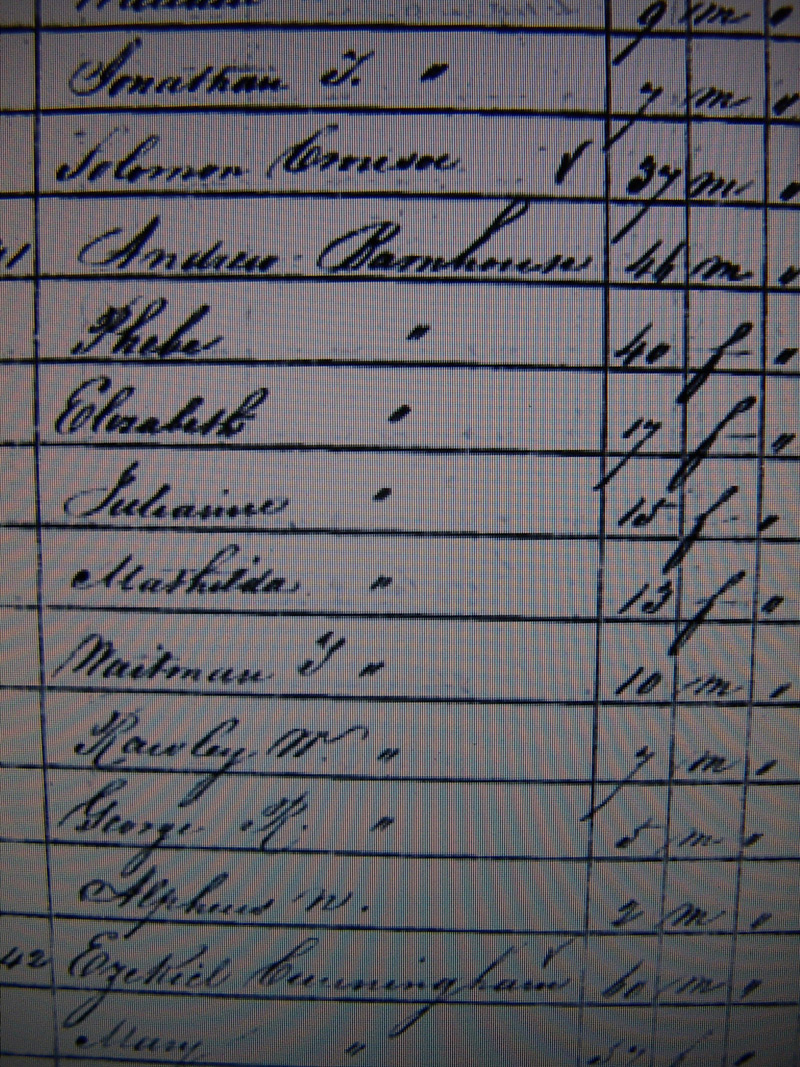 9 m "
Jonathan T. " 7 m "
Solomon 37 m "
41 Andrew Barnhouse 46 m "
Phebe " 40 f "
Elizabeth " 17 f "
Julianne " 15 f "
Mathilda " 13 f "
Waitman T " 10 m "
Rawley W. " 7 m "
George K. " 5 m "
Alpheus W. 2 m "
42 Ezekiel Cunningham 60 m "
Mary " f "